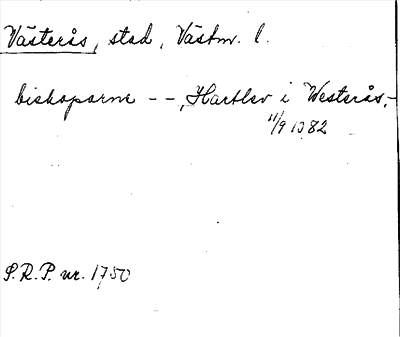 Västerås, stad, Västm. l.
biskoparne - -, Hartlev i Westerås, -
11/9 1382
S.R.P. nr. 1750